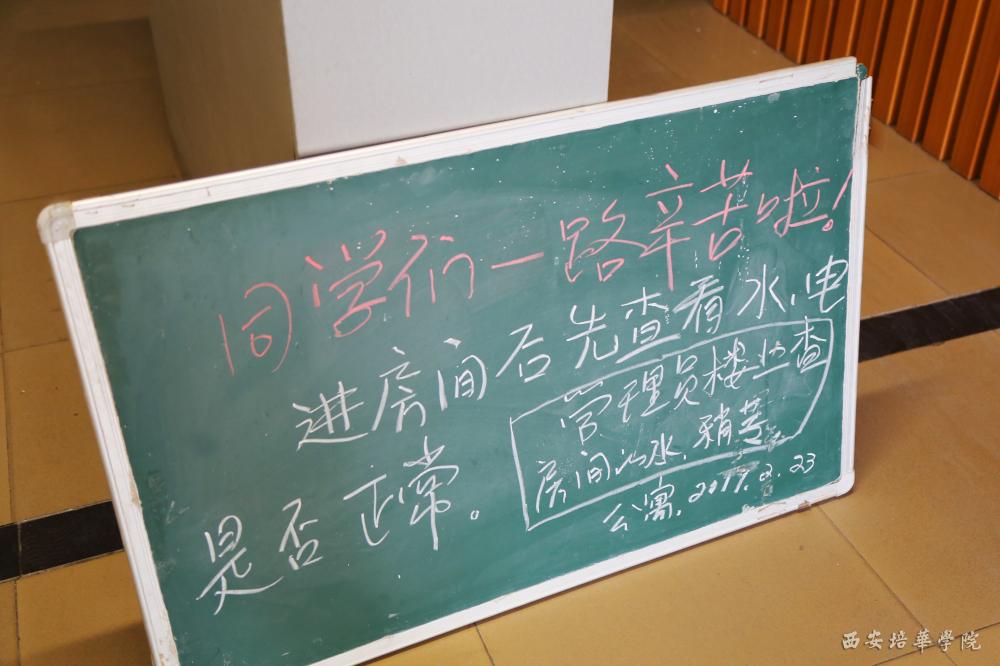 同学们一路辛苦啦！
进房间后先查看水、电
是否正常。
管理员楼上查
房间水、稍等
公寓，2017.2.23
西安培華學院